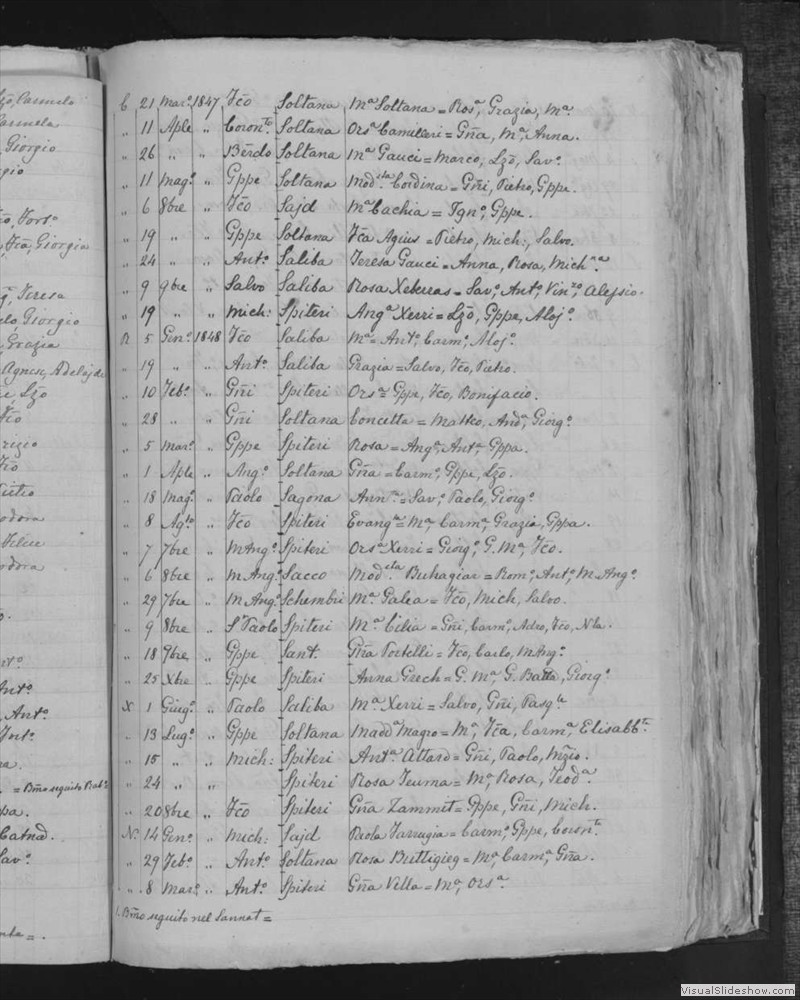 Carmelo
Carmela
Giorgio
Giorgio
Giorgia
Teresa
Giorgio
Grazia
Agnese, Adelajde
Lzō
Fcō
Felice
Antº.
= Bm̃o seguito Rab.º
C 21 Marº. 1847 Fcō Soltana Mª Soltana = Rosª, Grazia, Mª.
" 11 Aple " Coronto. Soltana Orsª Camilleri = Gña, Mª, Anna.
" 26 " " Berdo Soltana Mª Gauci = Marco, Lzō, Savº.
" 11 Magº. " Gppe Soltana Modsta. Cordina = Gñi, Pietro, Gppe.
" 6 8bre " Fcō Sajd Mª Cachia = Ignº, Gppe.
" 19 " " Gppe Soltana Fca Agius = Pietro, Mich:, Salvo.
" 24 " " Antº. Saliba Teresa Gauci = Anna, Rosa, Michna.
" 9 9bre " Salvo Saliba Rosa Xekerras = Savº, Antº, Vinzo, Alessio.
" 19 " " Mich: Spiteri Angª Xerri = Lzō, Gppe, Alojº.
R 5 Genº. 1848 Fcō Saliba Mª = Antº, Carmº, Alojº.
" 19 " " Antº. Saliba Grazia = Salvo, Fcō, Pietro.
" 10 Febº. " Gñi Spiteri Orsª = Gppe, Fcō, Bonifacio.
" 28 " " Gñi Soltana Concetta = Matteo, Andª, Giorgº.
" 5 Marº. " Gppe Spiteri Rosa = Angª, Antª, Gppa.
" 1 Aple " Angº. Soltana Gña = Carmº, Gppe, Lzō.
" 18 Magº. " Paolo Sagona Annª = Savº, Paolo, Giorgº
" 8 Agto " Fcō Spiteri Evangta = Mª, Carmª, Grazia, Gppa.
" 7 7bre " MAngº. Spiteri Orsª Xerri = Giorgº, G. Mª, Fcō.
" 6 8bre " M Angº. Sacco Modsta. Buhagiar = Romº, Antº, M Angº.
" 29 7bre " M Angº. Schembri Mª Galea = Fcō, Mich, Salvo.
" 9 8bre " Sr Paolo Spiteri Mª Cilia = Gñi, Carmº, Adeo, Fcō, Nla.
" 18 9bre " Gppe Sant Gña Portelli = Fcō, Carlo, MAngº.
" 25 Xbre " Gppe Spiteri Anna Grech = G. Mª, G. Batta, Giorgº
X 1 Giugº. " Paolo Saliba Mª Xerri = Salvo, Gñi, Pasqle
" 13 Lugº. " Gppe Soltana Maddª Magro = Mª, Fca, Carmª, Elisabta.
" 15 " " Mich: Spiteri Antª Attard = Gñi, Paolo, Mzio.
" 24 " " Spiteri Rosa Teuma = Mª, Rosa, Teodª.
" 20 8bre " Fcō Spiteri Gña Zammit = Gppe, Gñi, Mich.
N. 14 Genº. " Mich: Sajd Paola Farrugia = Carmº, Gppe, Coronto.
" 29 Febº. " Antº. Soltana Rosa Buttigieg = Mª, Carmª, Gña.
" 8 Marº. " Antº. Spiteri Gña Vella = Mª, Orsª.
1. Bm̃o seguito nel Sannat =
VisualSlideshow.com